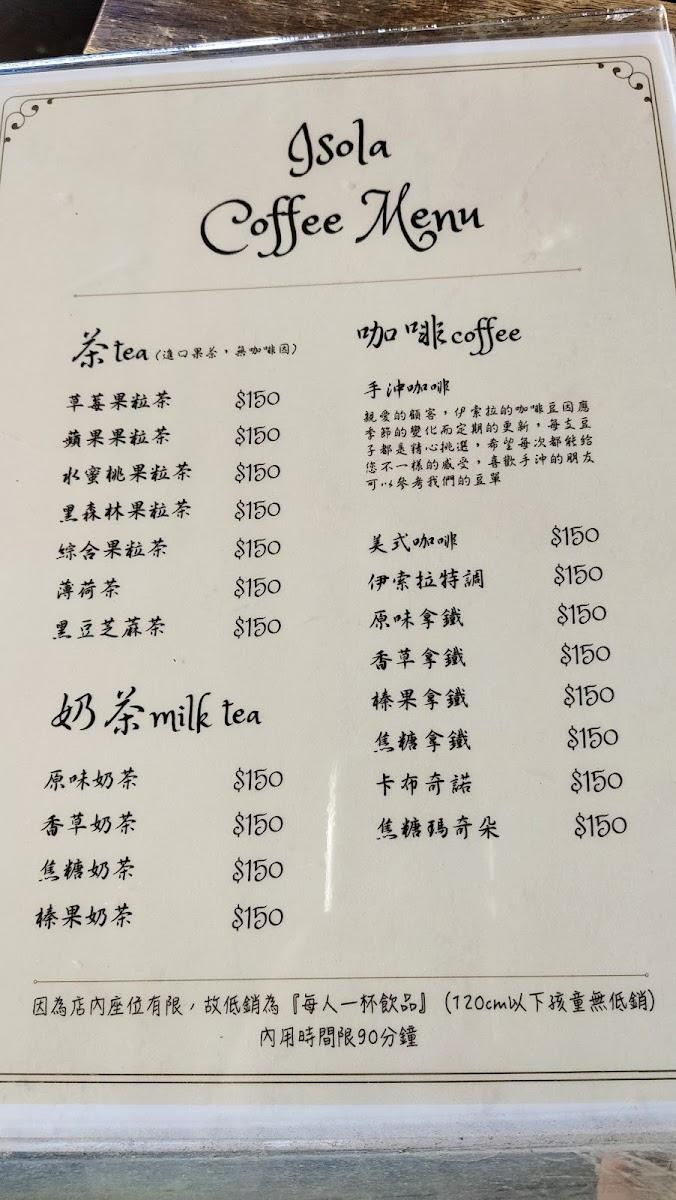 Isola
Coffee Menu
茶 tea (進口果茶，無咖啡因)
草莓果粒茶 $150
蘋果果粒茶 $150
水蜜桃果粒茶 $150
黑森林果粒茶 $150
綜合果粒茶 $150
薄荷茶 $150
黑豆芝蔴茶 $150
奶茶 milk tea
原味奶茶 $150
香草奶茶 $150
焦糖奶茶 $150
榛果奶茶 $150
咖啡 coffee
手沖咖啡
親愛的顧客，伊索拉的咖啡豆因應
季節的變化而定期的更新，每支豆
子都是精心挑選，希望每次都能給
您不一樣的感受，喜歡手沖的朋友
可以參考我們的豆單
美式咖啡 $150
伊索拉特調 $150
原味拿鐵 $150
香草拿鐵 $150
榛果拿鐵 $150
焦糖拿鐵 $150
卡布奇諾 $150
焦糖瑪奇朵 $150
因為店內座位有限，故低銷為『每人一杯飲品』 (120cm以下孩童無低銷)
內用時間限90分鐘